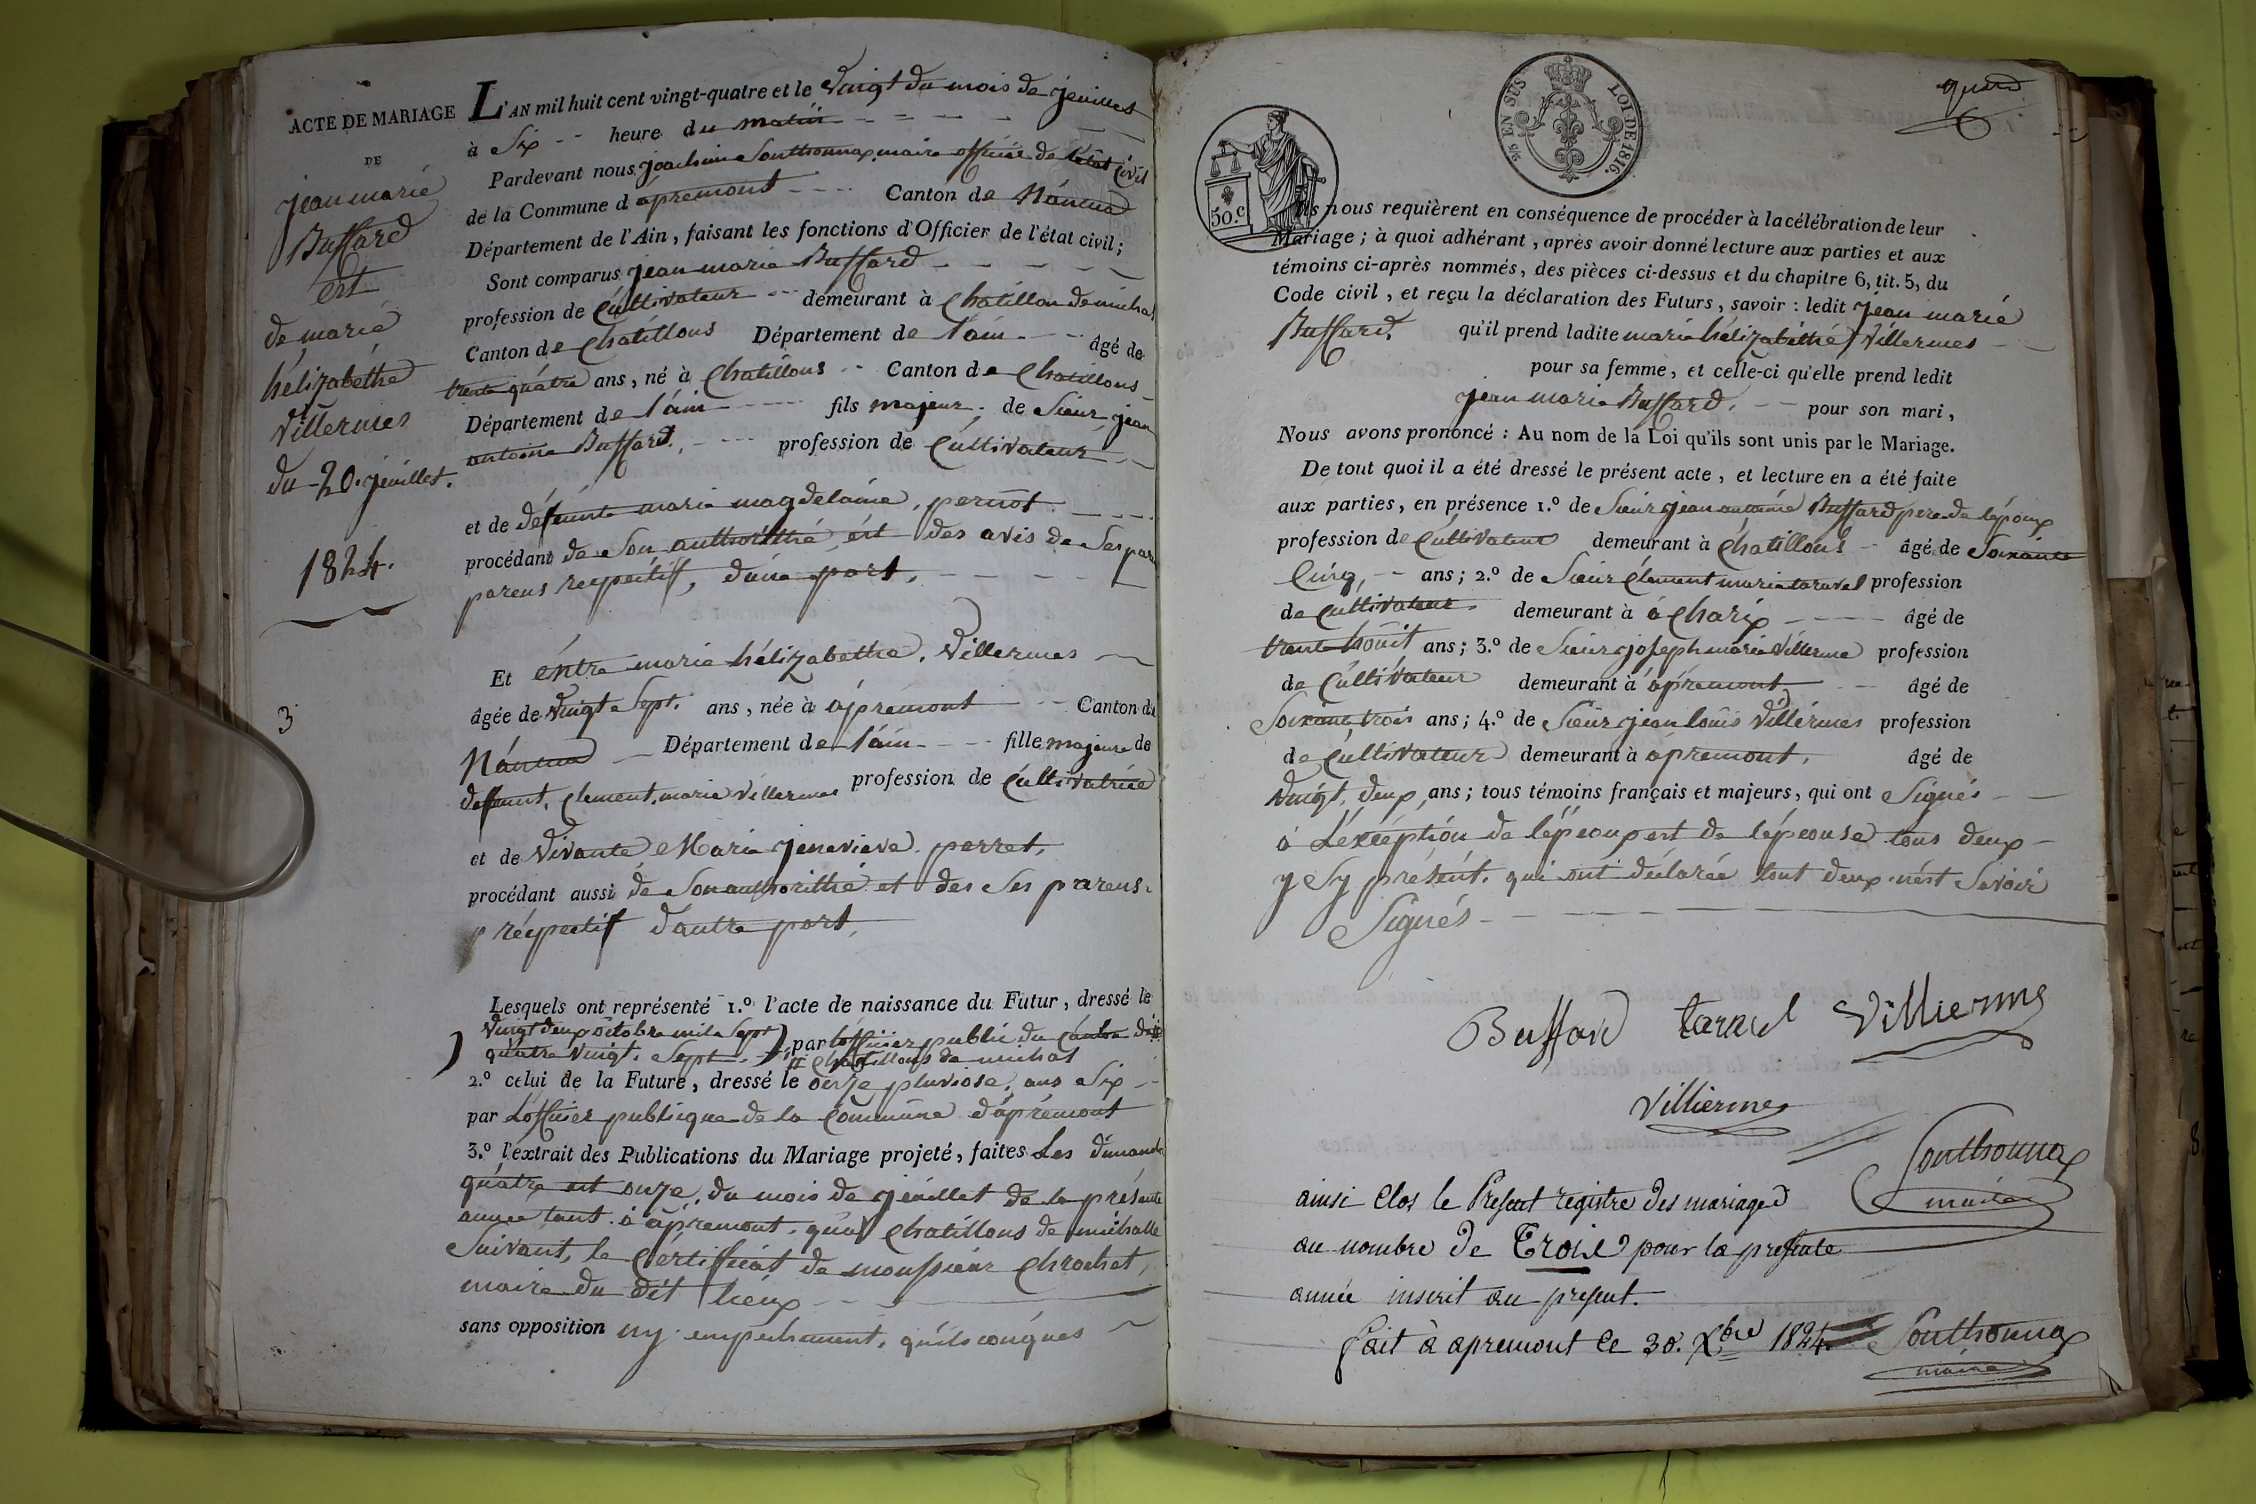 ACTE DE MARIAGE
DE
jean marie
Buffard
est
de marie
hélizabéthe
Villermes
du 20. jeuillet.
1824.
3
L'AN mil huit cent vingt-quatre et le vingt du mois de jeuillet
à Six heure du matin
Pardevant nous joachim Sonthonnax maire officié de l'état Civil
de la Commune d'âpremont Canton de Nánтua
Département de l'Ain, faisant les fonctions d'Officier de l'état civil;
Sont comparus jean marie Buffard
profession de Cultivateur demeurant à Chatillon de michal
Canton de Chatillons Département de l'ain âgé de
trente quátre ans, né à Chatillons Canton de Chatillons
Département de l'ain fils majeur de Sieur jean
antoine Buffard. profession de Cultivateur
et de défeunte marie magdelaine, pernot
procédant de Son authorithé ért des avis de Ses par
parens respectif, d'une part,
Et éntre marie hélizabethe. Villermes
âgée de vingt Sept. ans, née à ápremont Canton de
Nánтua Département de l'ain fille majeure de
deffeunt, Clement marie Villermes profession de Cultivatrice
et de Vivante Marie jenevieve. perret,
procédant aussi de Son authorithé et des Ses parens
réspectif d'autre part,
Lesquels ont représenté 1.º l'acte de naissance du Futur, dressé le
vingt deux octobre mile Sept
quatre vingt. Sept par l'officier public du Canton dudit
Chatillons de michal
2.º celui de la Future, dressé le onze pluviose, ans Six
par L'officier publique de la Commune d'ápremont
3.º l'extrait des Publications du Mariage projeté, faites Les dimanche
quátre ért onze. du mois de jeuillet de la présente
annee tant à ápremont. qu'a Chatillons de michalle
Suivant, le Cértifficat de monssieur Chrochet,
maire du dit lieux
sans opposition ny empechement. quéls conques
quard
50.C
2/5 EN SUS LOI DE 1816.
Ils nous requièrent en conséquence de procéder à la célébration de leur
Mariage; à quoi adhérant, après avoir donné lecture aux parties et aux
témoins ci-après nommés, des pièces ci-dessus et du chapitre 6, tit. 5, du
Code civil, et reçu la déclaration des Futurs, savoir: ledit jean marie
Buffard. qu'il prend ladite marie hélizabéthe Villermes
pour sa femme, et celle-ci qu'elle prend ledit
jean marie Buffard. pour son mari,
Nous avons prononcé: Au nom de la Loi qu'ils sont unis par le Mariage.
De tout quoi il a été dressé le présent acte, et lecture en a été faite
aux parties, en présence 1.º de Sieur jean antoine Buffard pere de l'époux
profession de Cultivateur demeurant à Chatillons âgé de Soixante
Cinq, ans; 2.º de Sieur Clement marie taravel profession
de Cultivateur demeurant à á Charix âgé de
trente houit ans; 3.º de Sieur joseph marie Villerme profession
de Cultivateur demeurant à ápremont âgé de
Soixante trois ans; 4.º de Sieur jean louis Villérmes profession
de Cultivateur demeurant à ápremont, âgé de
vingt, deux, ans; tous témoins français et majeurs, qui ont Signés
á L'éxcéption de l'épeoux ert de l'épeouse tous deux
y Sy présént. qui ont déclarée tout deux nést Savoir
Signés
Buffard taravel Villierme
Villiermes
Sonthonnax
maire
ainsi Clos le Présent registre des mariages
au nombre de Trois pour la presente
année inscrit au présent.
fait à apremont le 30. Xbre 1824 Sonthonnax
maire